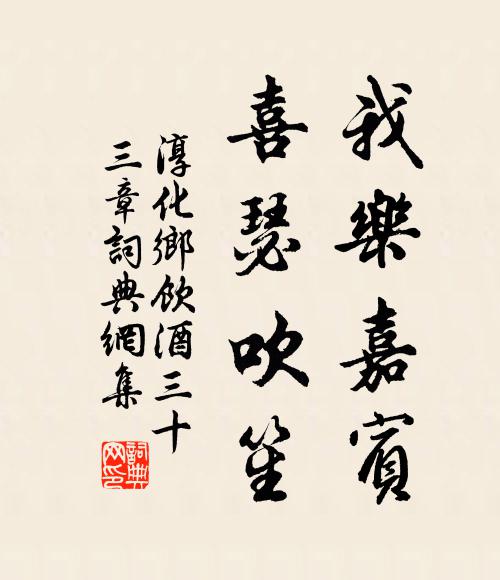 我樂嘉賓
喜瑟吹笙
淳化鄉飲酒三十
三章詞典網集
詞典
网印